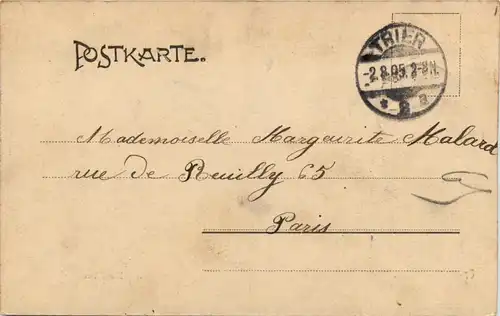 POSTKARTE.
TRIER
-2.8.05. 2-3N.
* 2 a
Mademoiselle Marguerite Malard
rue de Reuilly 65
Paris